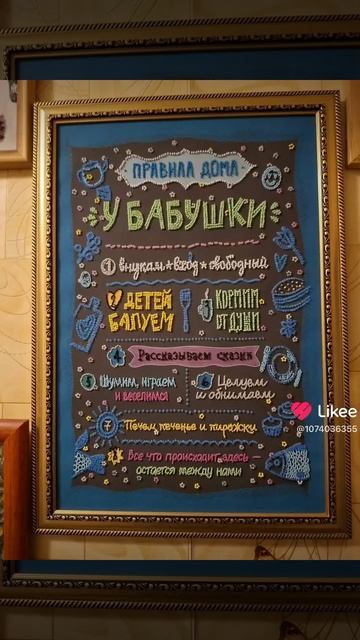 ПРАВИЛА ДОМА
У БАБУШКИ
1 внукам вход свободный
2 ДЕТЕЙ
БАЛУЕМ
КОРМИМ
ОТ ДУШИ
4 Рассказываем сказки
5 Шумим, играем
и веселимся
6 Целуем
и обнимаем
7 Печем печенье и пирожки
Все что происходит здесь —
остается между нами
Likee
@1074036355